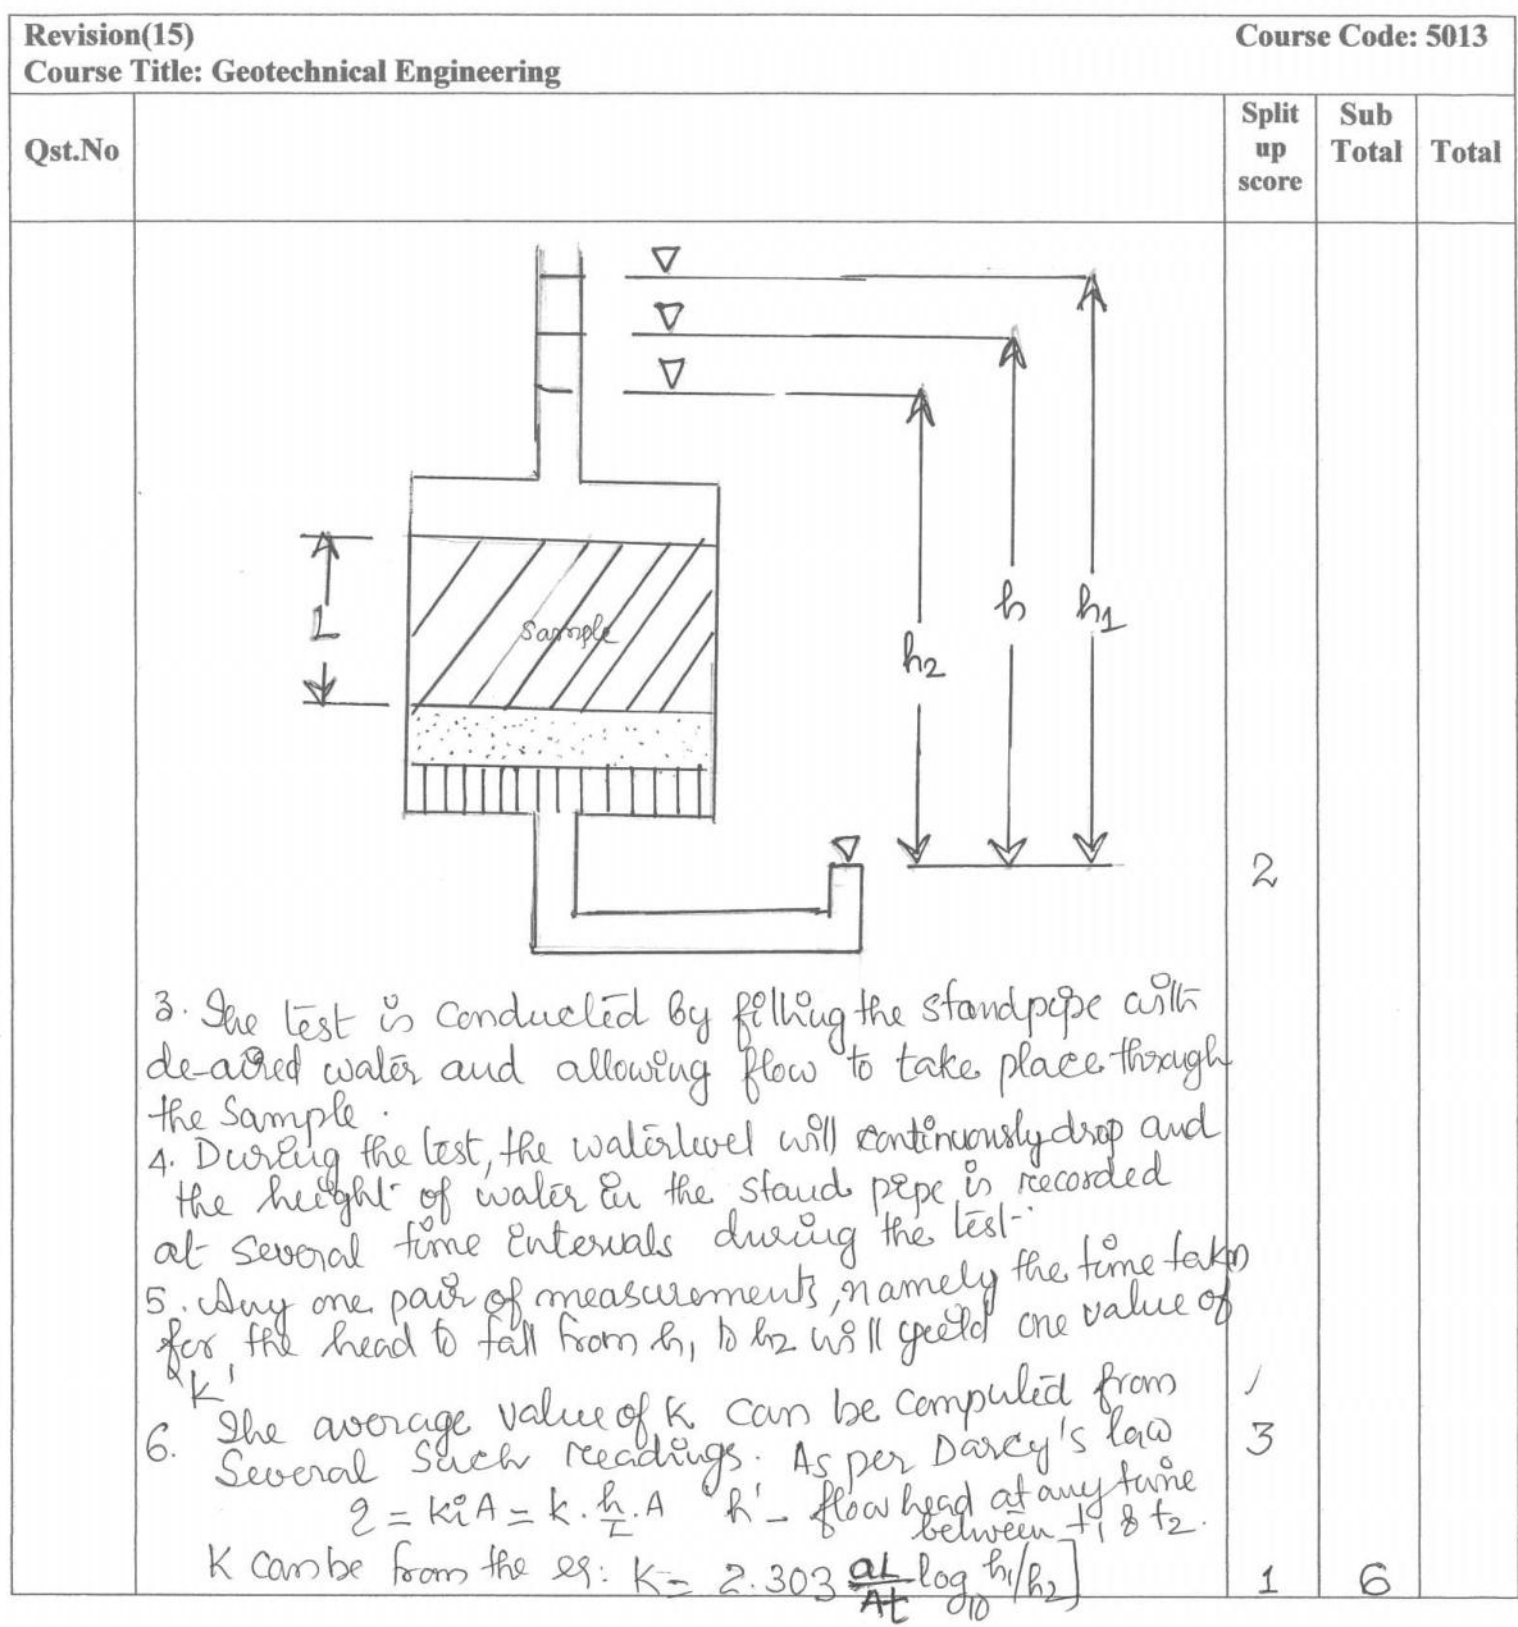 Revision(15) Course Code: 5013
Course Title: Geotechnical Engineering
Qst.No
Split up score
Sub Total
Total
h1
h
h2
L
Sample
2
3. The test is conducted by filling the standpipe with
de-aired water and allowing flow to take place through
the sample.
4. During the test, the water level will continuously drop and
the height of water in the stand pipe is recorded
at several time intervals during the test.
5. Any one pair of measurements, namely the time taken
for the head to fall from h1 to h2 will yield one value of
'k'
6. The average value of k can be computed from
Several Such readings. As per Darcy's law 3
q = kiA = k. h/L .A 'h' - flow head at any time
between t1 & t2.
K can be from the eq: K = 2.303 aL/At log10 h1/h2] 1 6